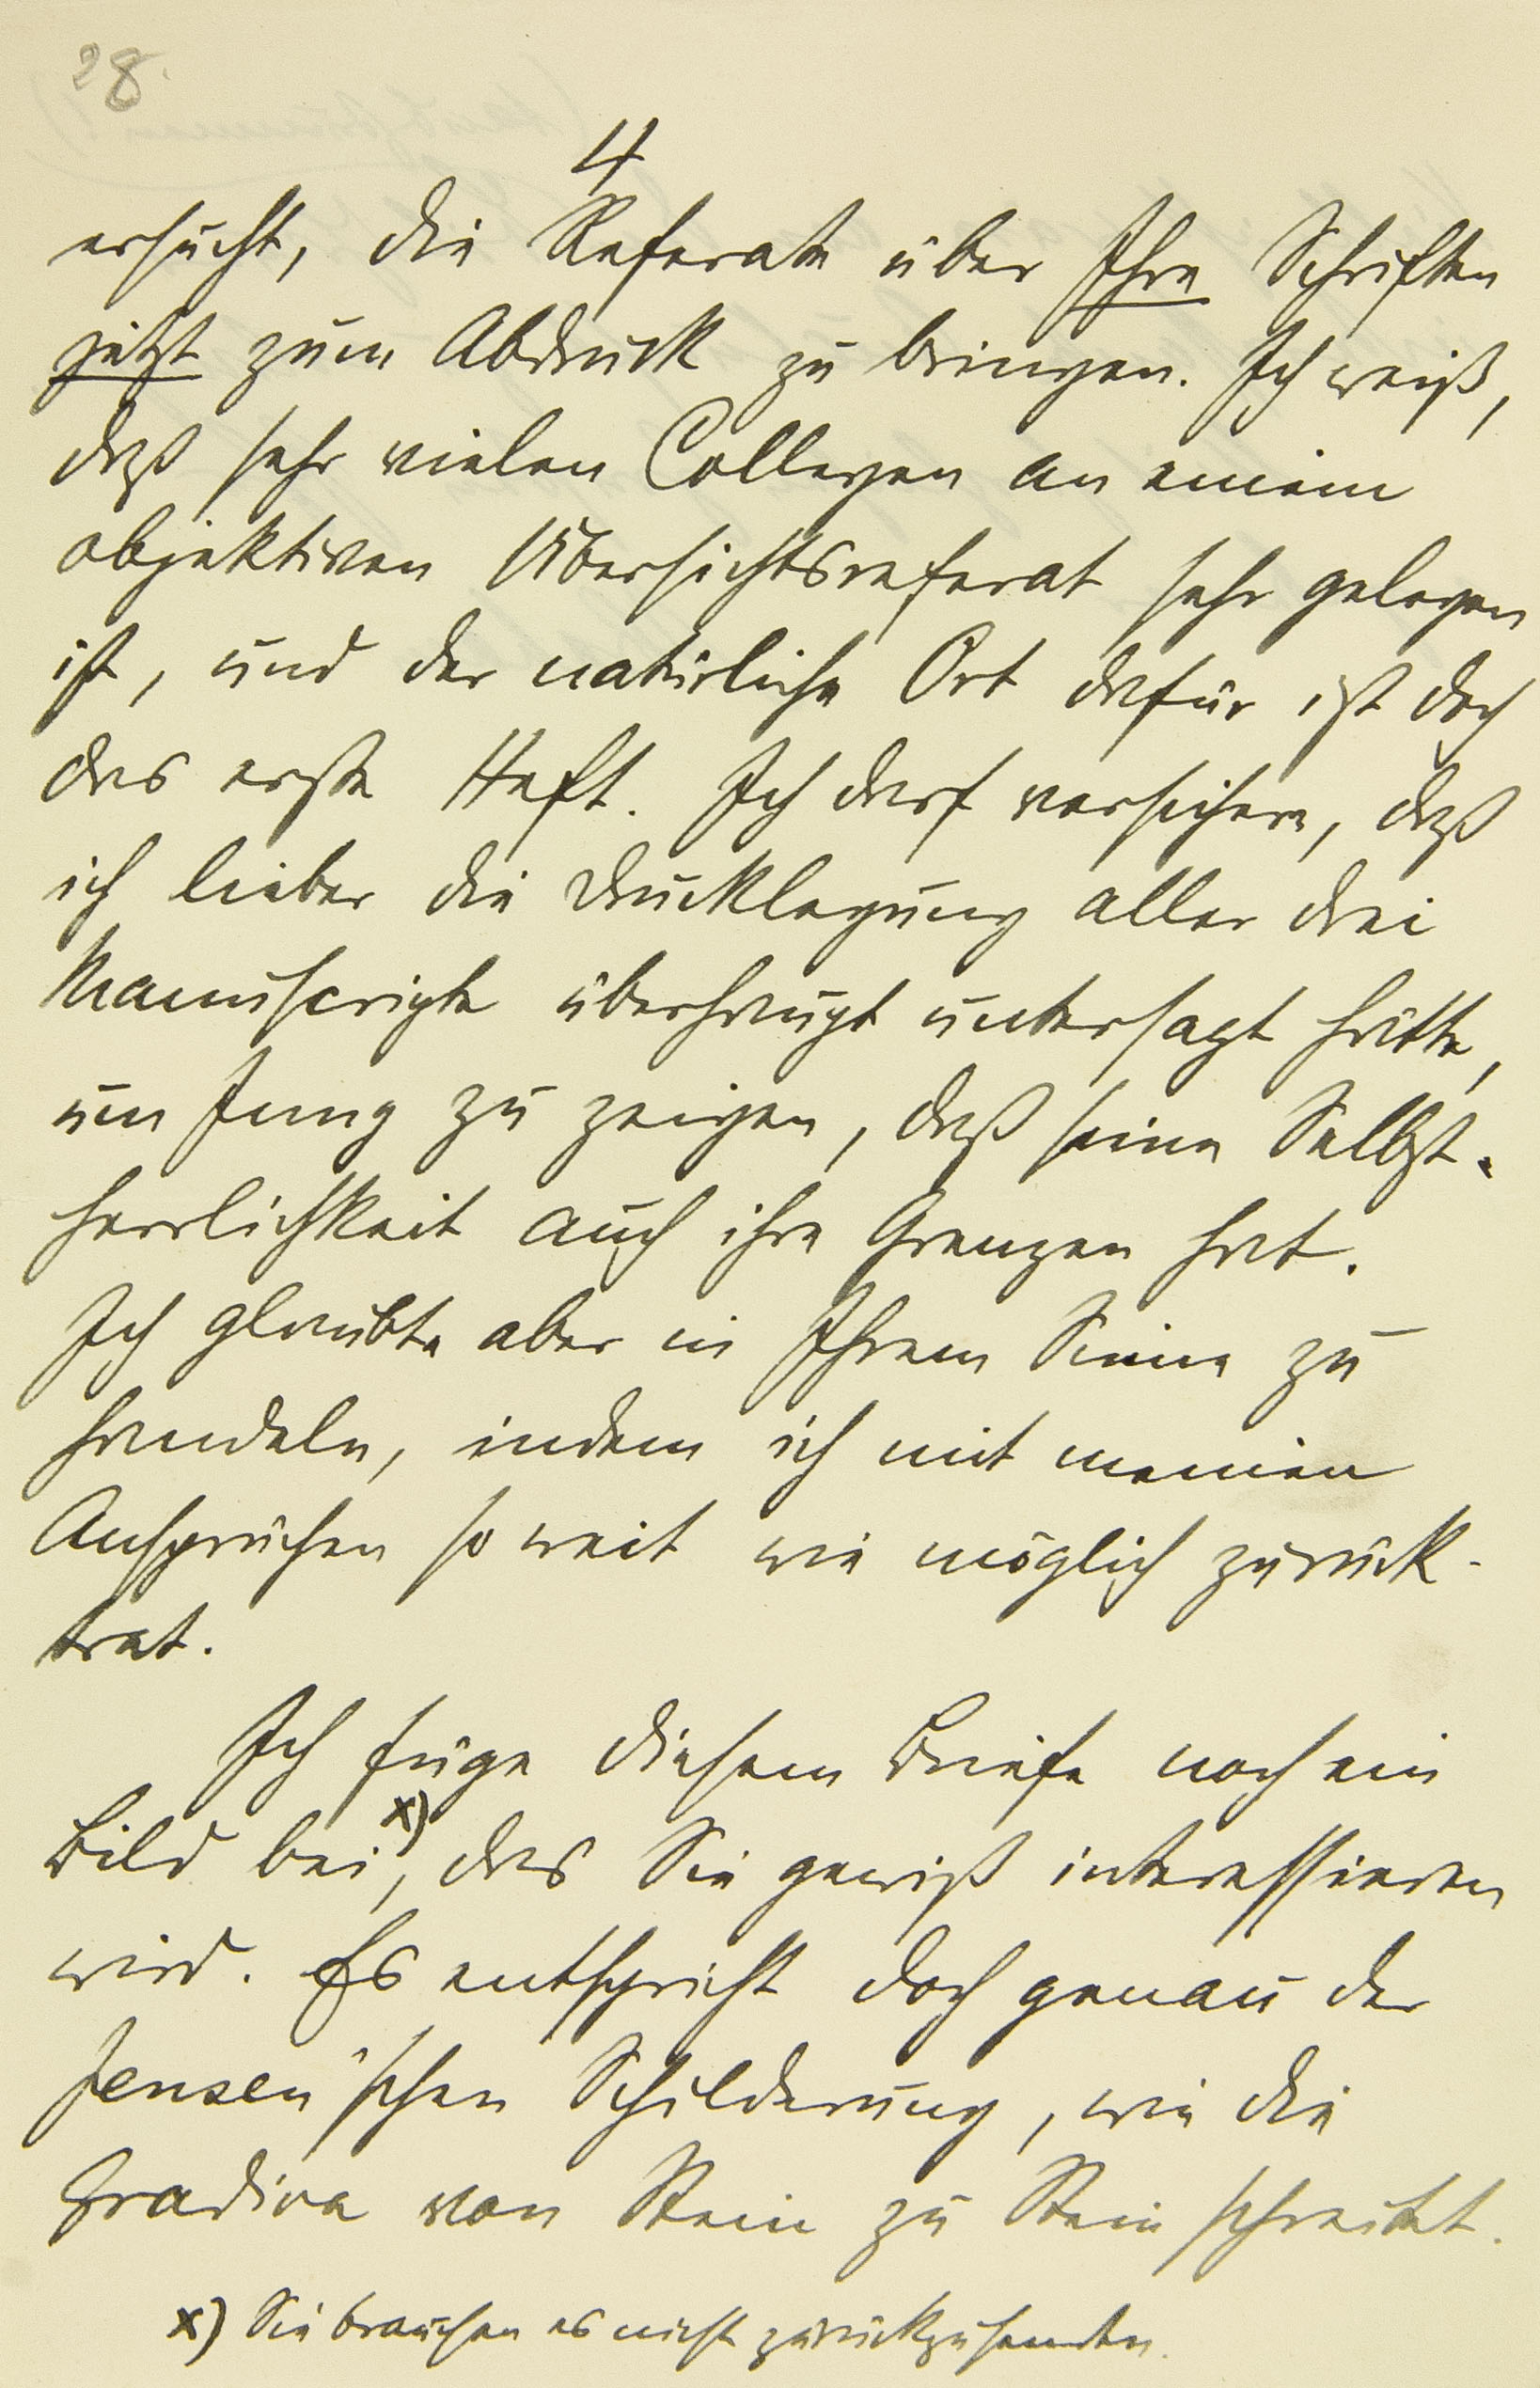 28.
4
ersucht, die Referate über Ihre Schriften
jetzt zum Abdruck zu bringen. Ich weiß,
daß sehr vielen Collegen an einem
objektiven Übersichtsreferat sehr gelegen
ist, und der natürliche Ort dafür ist doch
das erste Heft. Ich darf versichern, daß
ich lieber die Drucklegung aller drei
Manuscripte überhaupt untersagt hätte,
um Jung zu zeigen, daß seine Selbst-
herrlichkeit auch ihre Grenzen hat.
Ich glaubte aber in Ihrem Sinne zu
handeln, indem ich mit meinen
Ansprüchen so weit wie möglich zurück-
trat.
Ich füge diesem Briefe noch ein
Bild bei x), das Sie gewiß interessieren
wird. Es entspricht doch genau der
Jensen'schen Schilderung, wie die
Gradiva von Stein zu Stein schreitet.
x) Sie brauchen es nicht zurückzusenden.